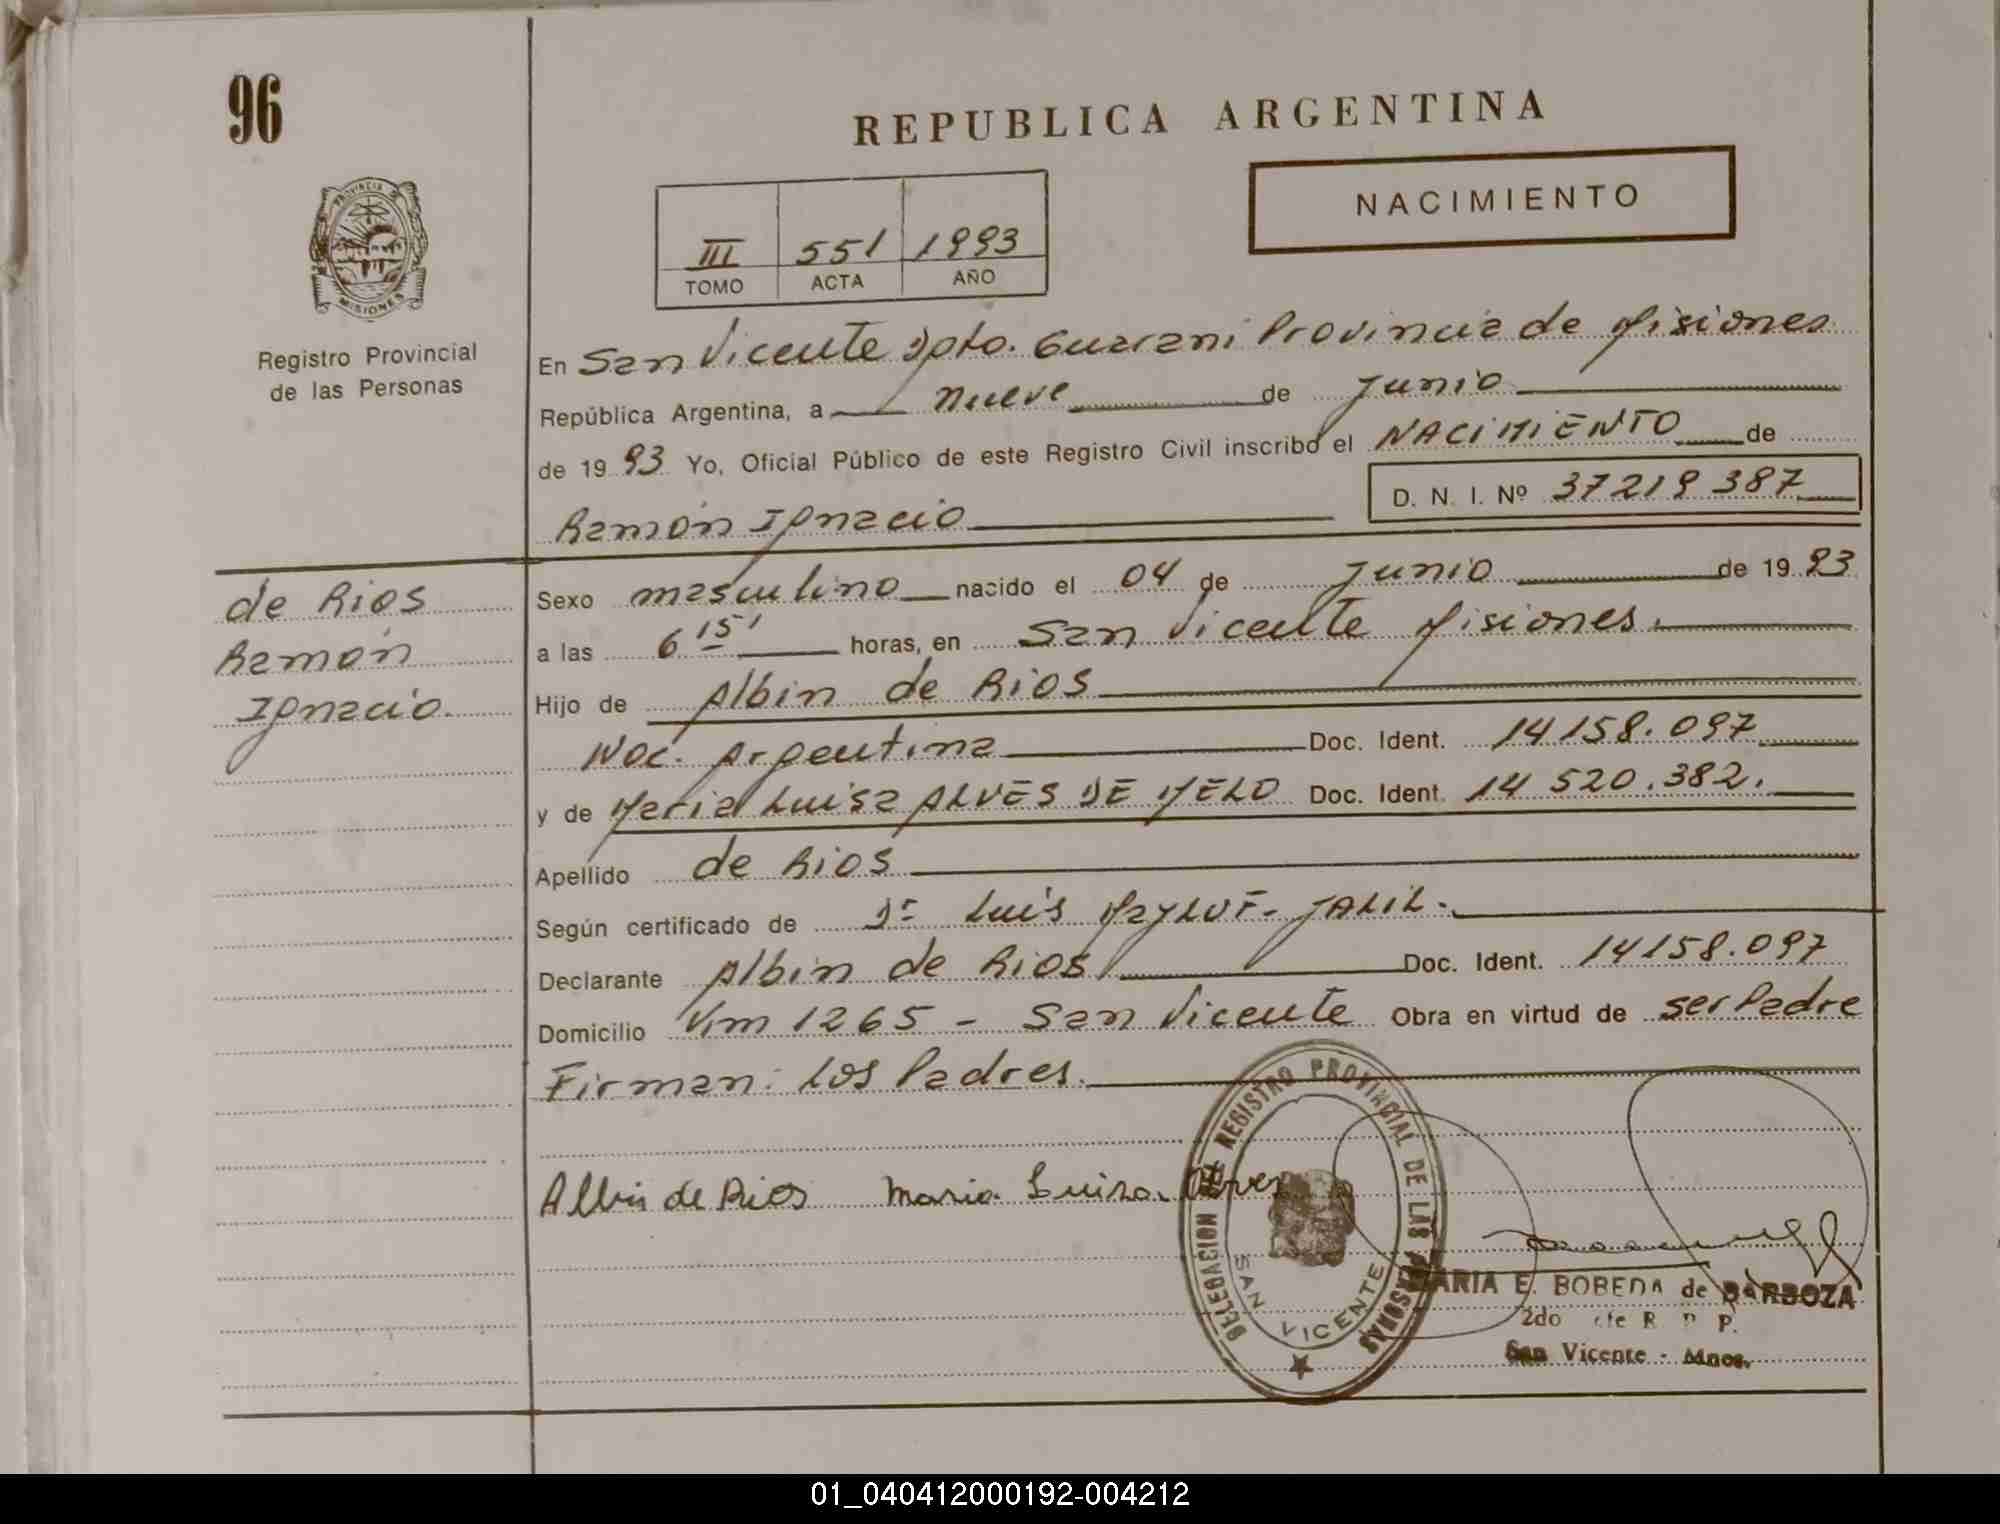 96
REPUBLICA ARGENTINA
NACIMIENTO
III 551 1993
TOMO ACTA AÑO
PROVINCIA DE MISIONES
Registro Provincial
de las Personas
En San Vicente Dpto. Guarani Provincia de Misiones
República Argentina, a nueve de Junio
de 1993 Yo, Oficial Público de este Registro Civil inscribo el NACIMIENTO de
D. N. I. Nº 37219387
Ramón Ignacio
de Rios
Ramón
Ignacio.
Sexo masculino nacido el 04 de Junio de 1993
a las 6 15' horas, en San Vicente Misiones.
Hijo de Albin de Rios
Nac. Argentina Doc. Ident. 14158.097
y de Maria Luisa ALVES DE MELO Doc. Ident. 14 520.382.
Apellido de Rios
Según certificado de Dr Luis JALIL.
Declarante Albin de Rios Doc. Ident. 14158.097
Domicilio Km 1265 - San Vicente Obra en virtud de ser Padre
Firman: Los Padres.
Albin de Rios Maria Luiza Alves
DELEGACION REGISTRO PROVINCIAL DE LAS PERSONAS
SAN VICENTE
MARIA E. BOBEDA de BARBOZA
2do R P.
San Vicente - Mnes.
01_040412000192-004212